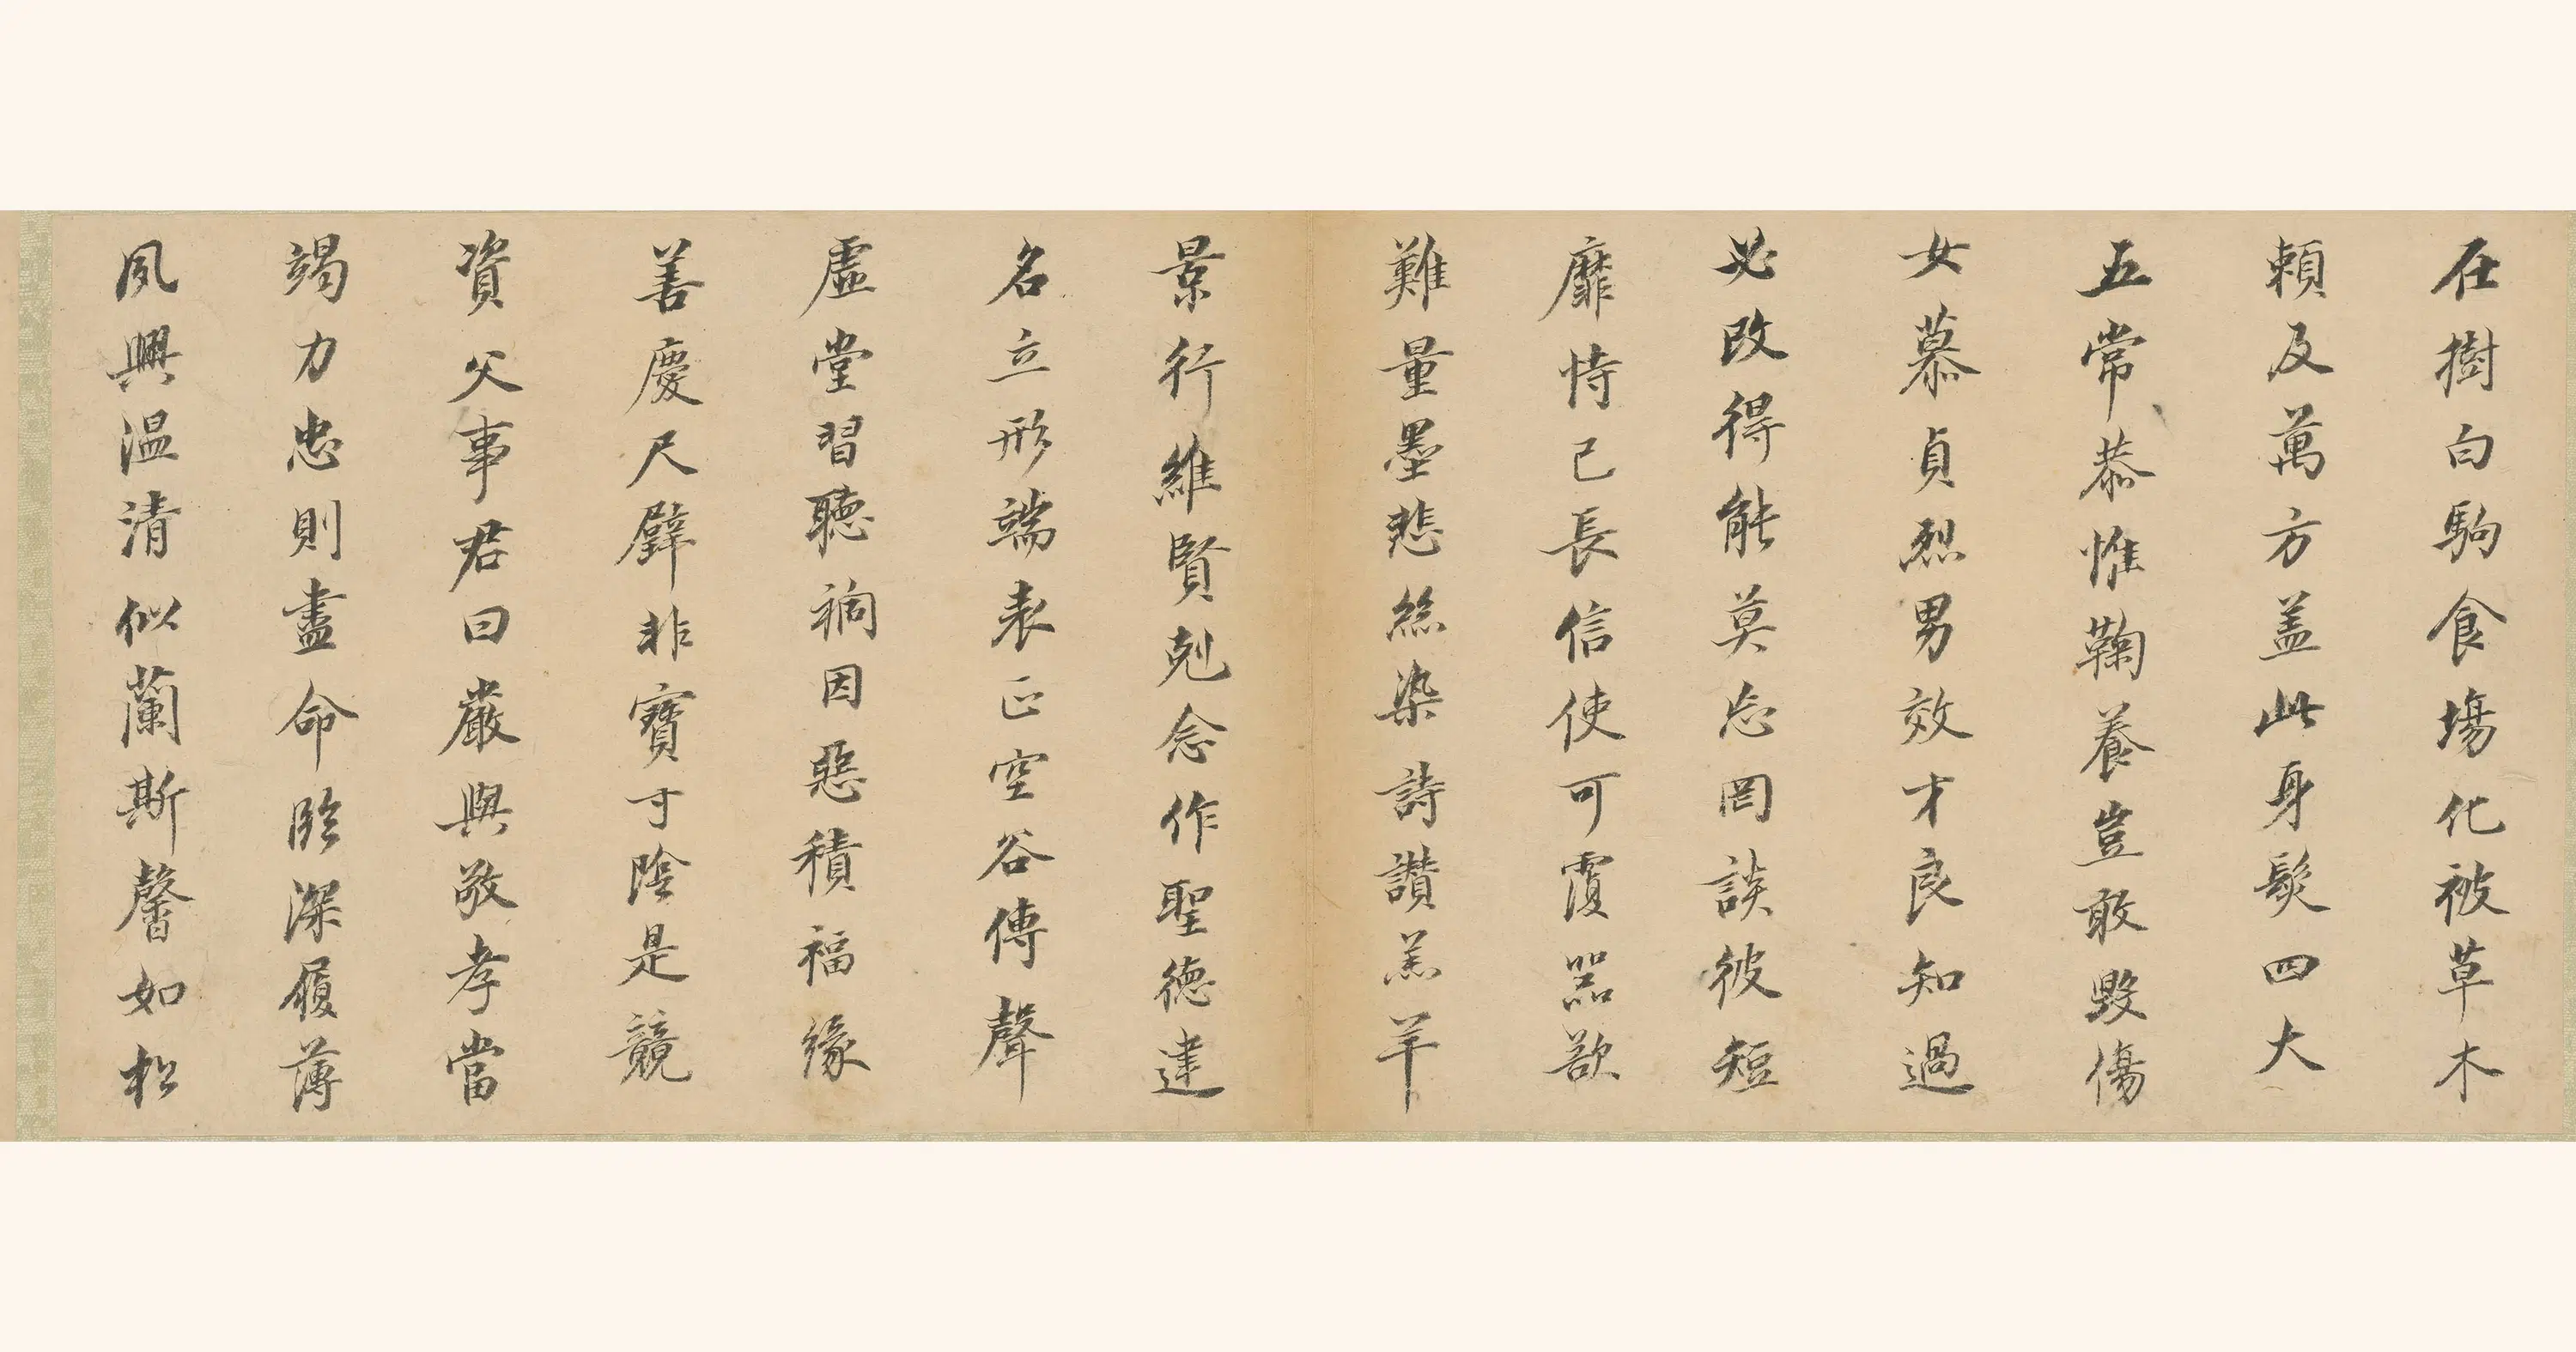 在樹白駒食場化被草木
賴及萬方盖此身髮四大
五常恭惟鞠養豈敢毀傷
女慕貞烈男效才良知過
必改得能莫忘罔談彼短
靡恃己長信使可覆器欲
難量墨悲絲染詩讚羔羊
景行維賢剋念作聖德建
名立形端表正空谷傳聲
虛堂習聽禍因惡積福緣
善慶尺璧非寶寸陰是競
資父事君曰嚴與敬孝當
竭力忠則盡命臨深履薄
夙興溫清似蘭斯馨如松